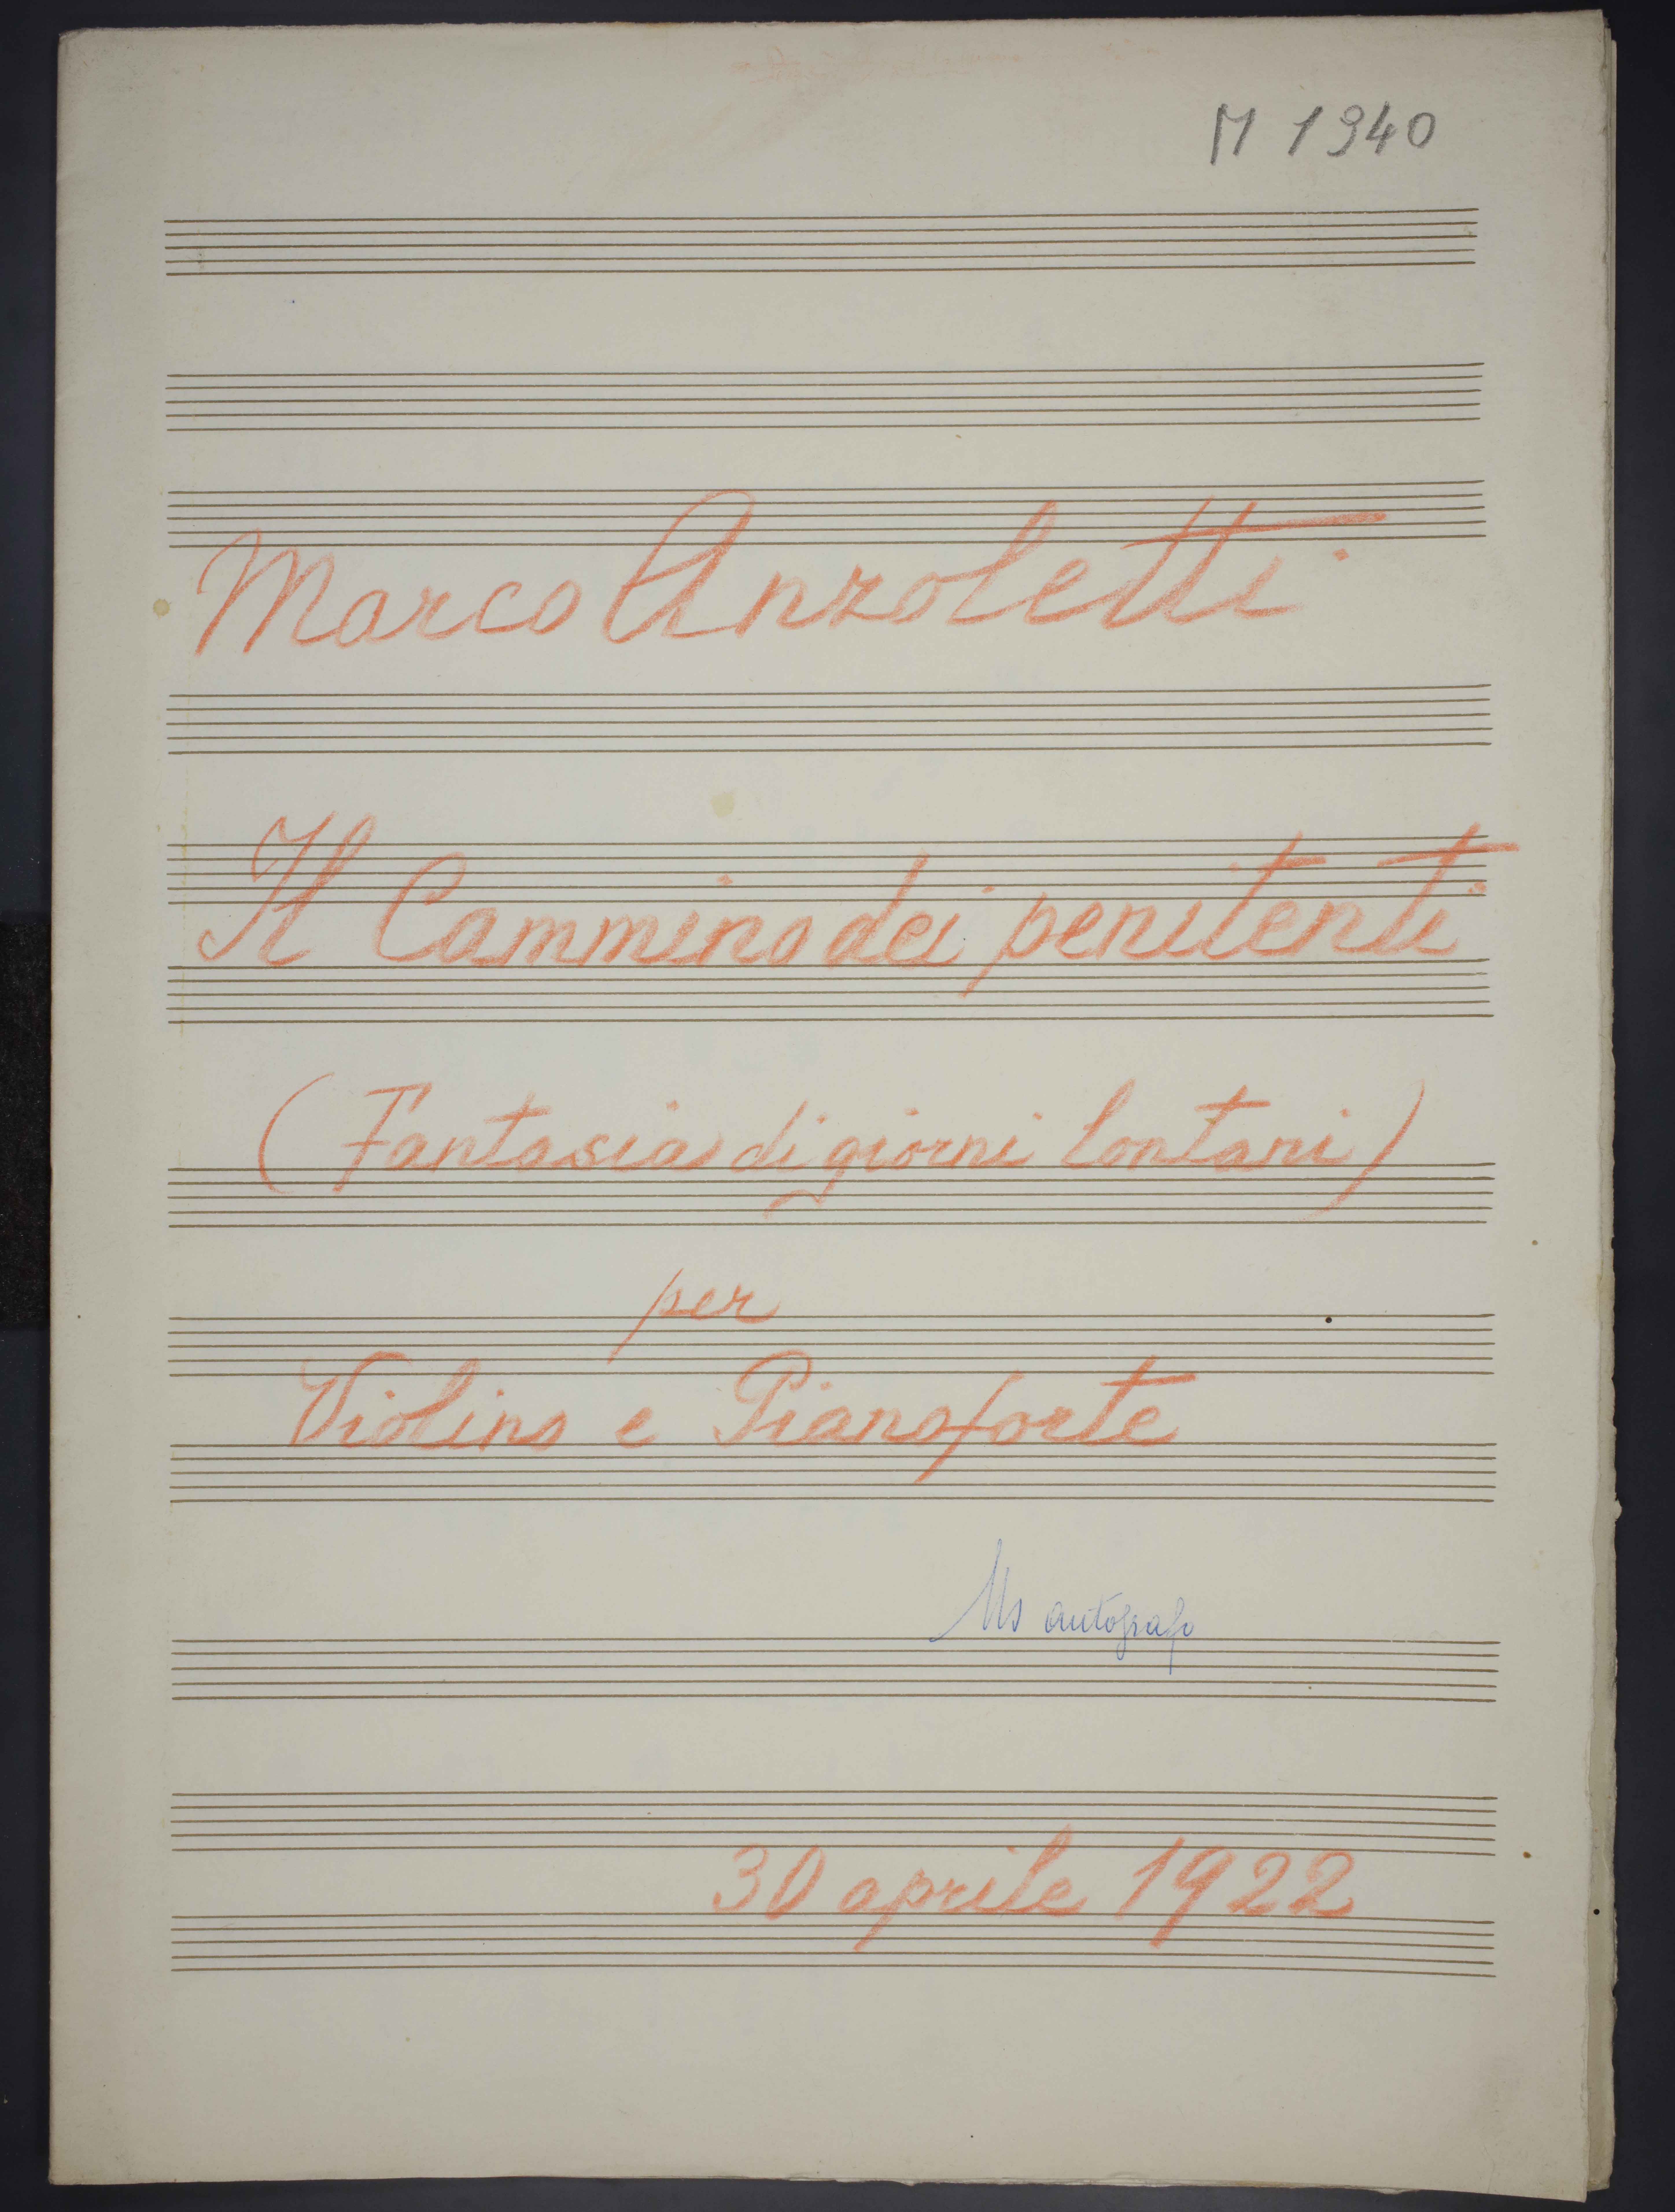 M 1940
Marco Anzoletti
Il Cammino dei penitenti
(Fantasia di giorni lontani)
per
Violino e Pianoforte
Ms autografo
30 aprile 1922